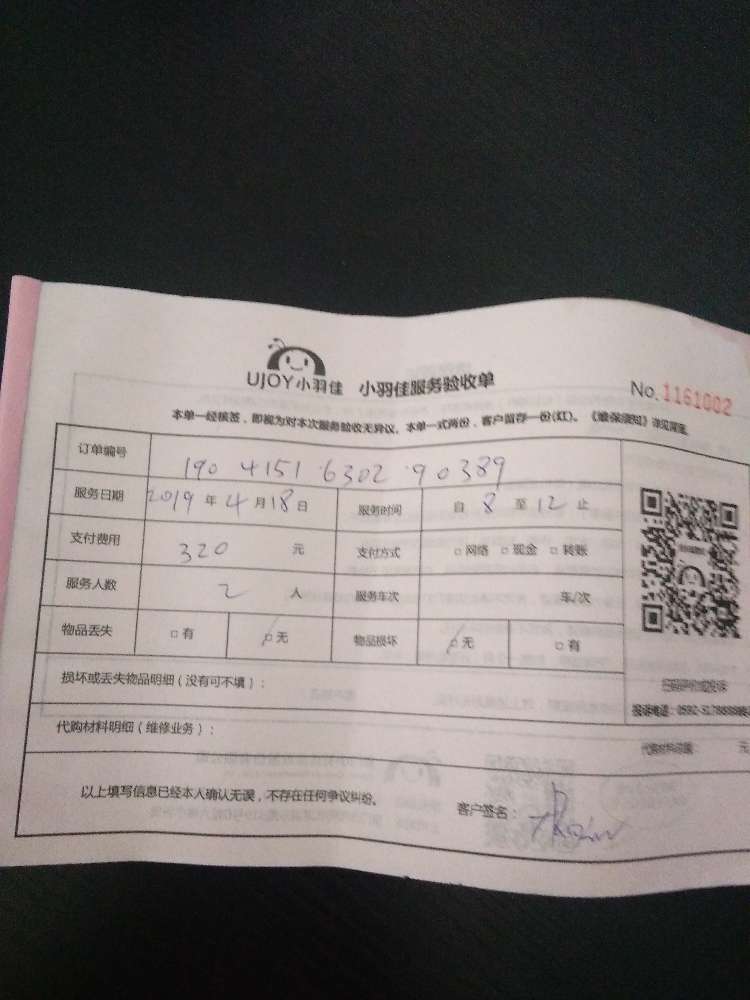 UJOY小羽佳 小羽佳服务验收单 No.1161002
本单一经核签，即视为对本次服务验收无异议。本单一式两份，客户留存一份(红)。《维保须知》详见背面
订单编号 190 4151 6302 90389
服务日期 2019年4月18日 服务时间 自8至12止
支付费用 320 元 支付方式 □网络 □现金 □转账
服务人数 2 人 服务车次 车/次
物品丢失 □有 □无 物品损坏 □无 □有
扫码评价或投诉
损坏或丢失物品明细（没有可不填）：
投诉电话：0592-5178888
代购材料明细（维修业务）：
代购材料总额： 元
以上填写信息已经本人确认无误，不存在任何争议纠纷。 客户签名：